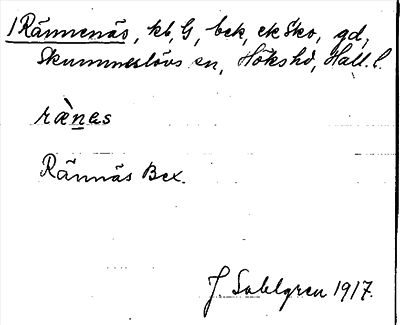 1 Rännenäs, kb, G, bek, ek Sko, gd,
Skummeslövs sn, Höks hd, Hall. l.
ræ̀nas
Rännäs Bex.
J Sahlgren 1917.